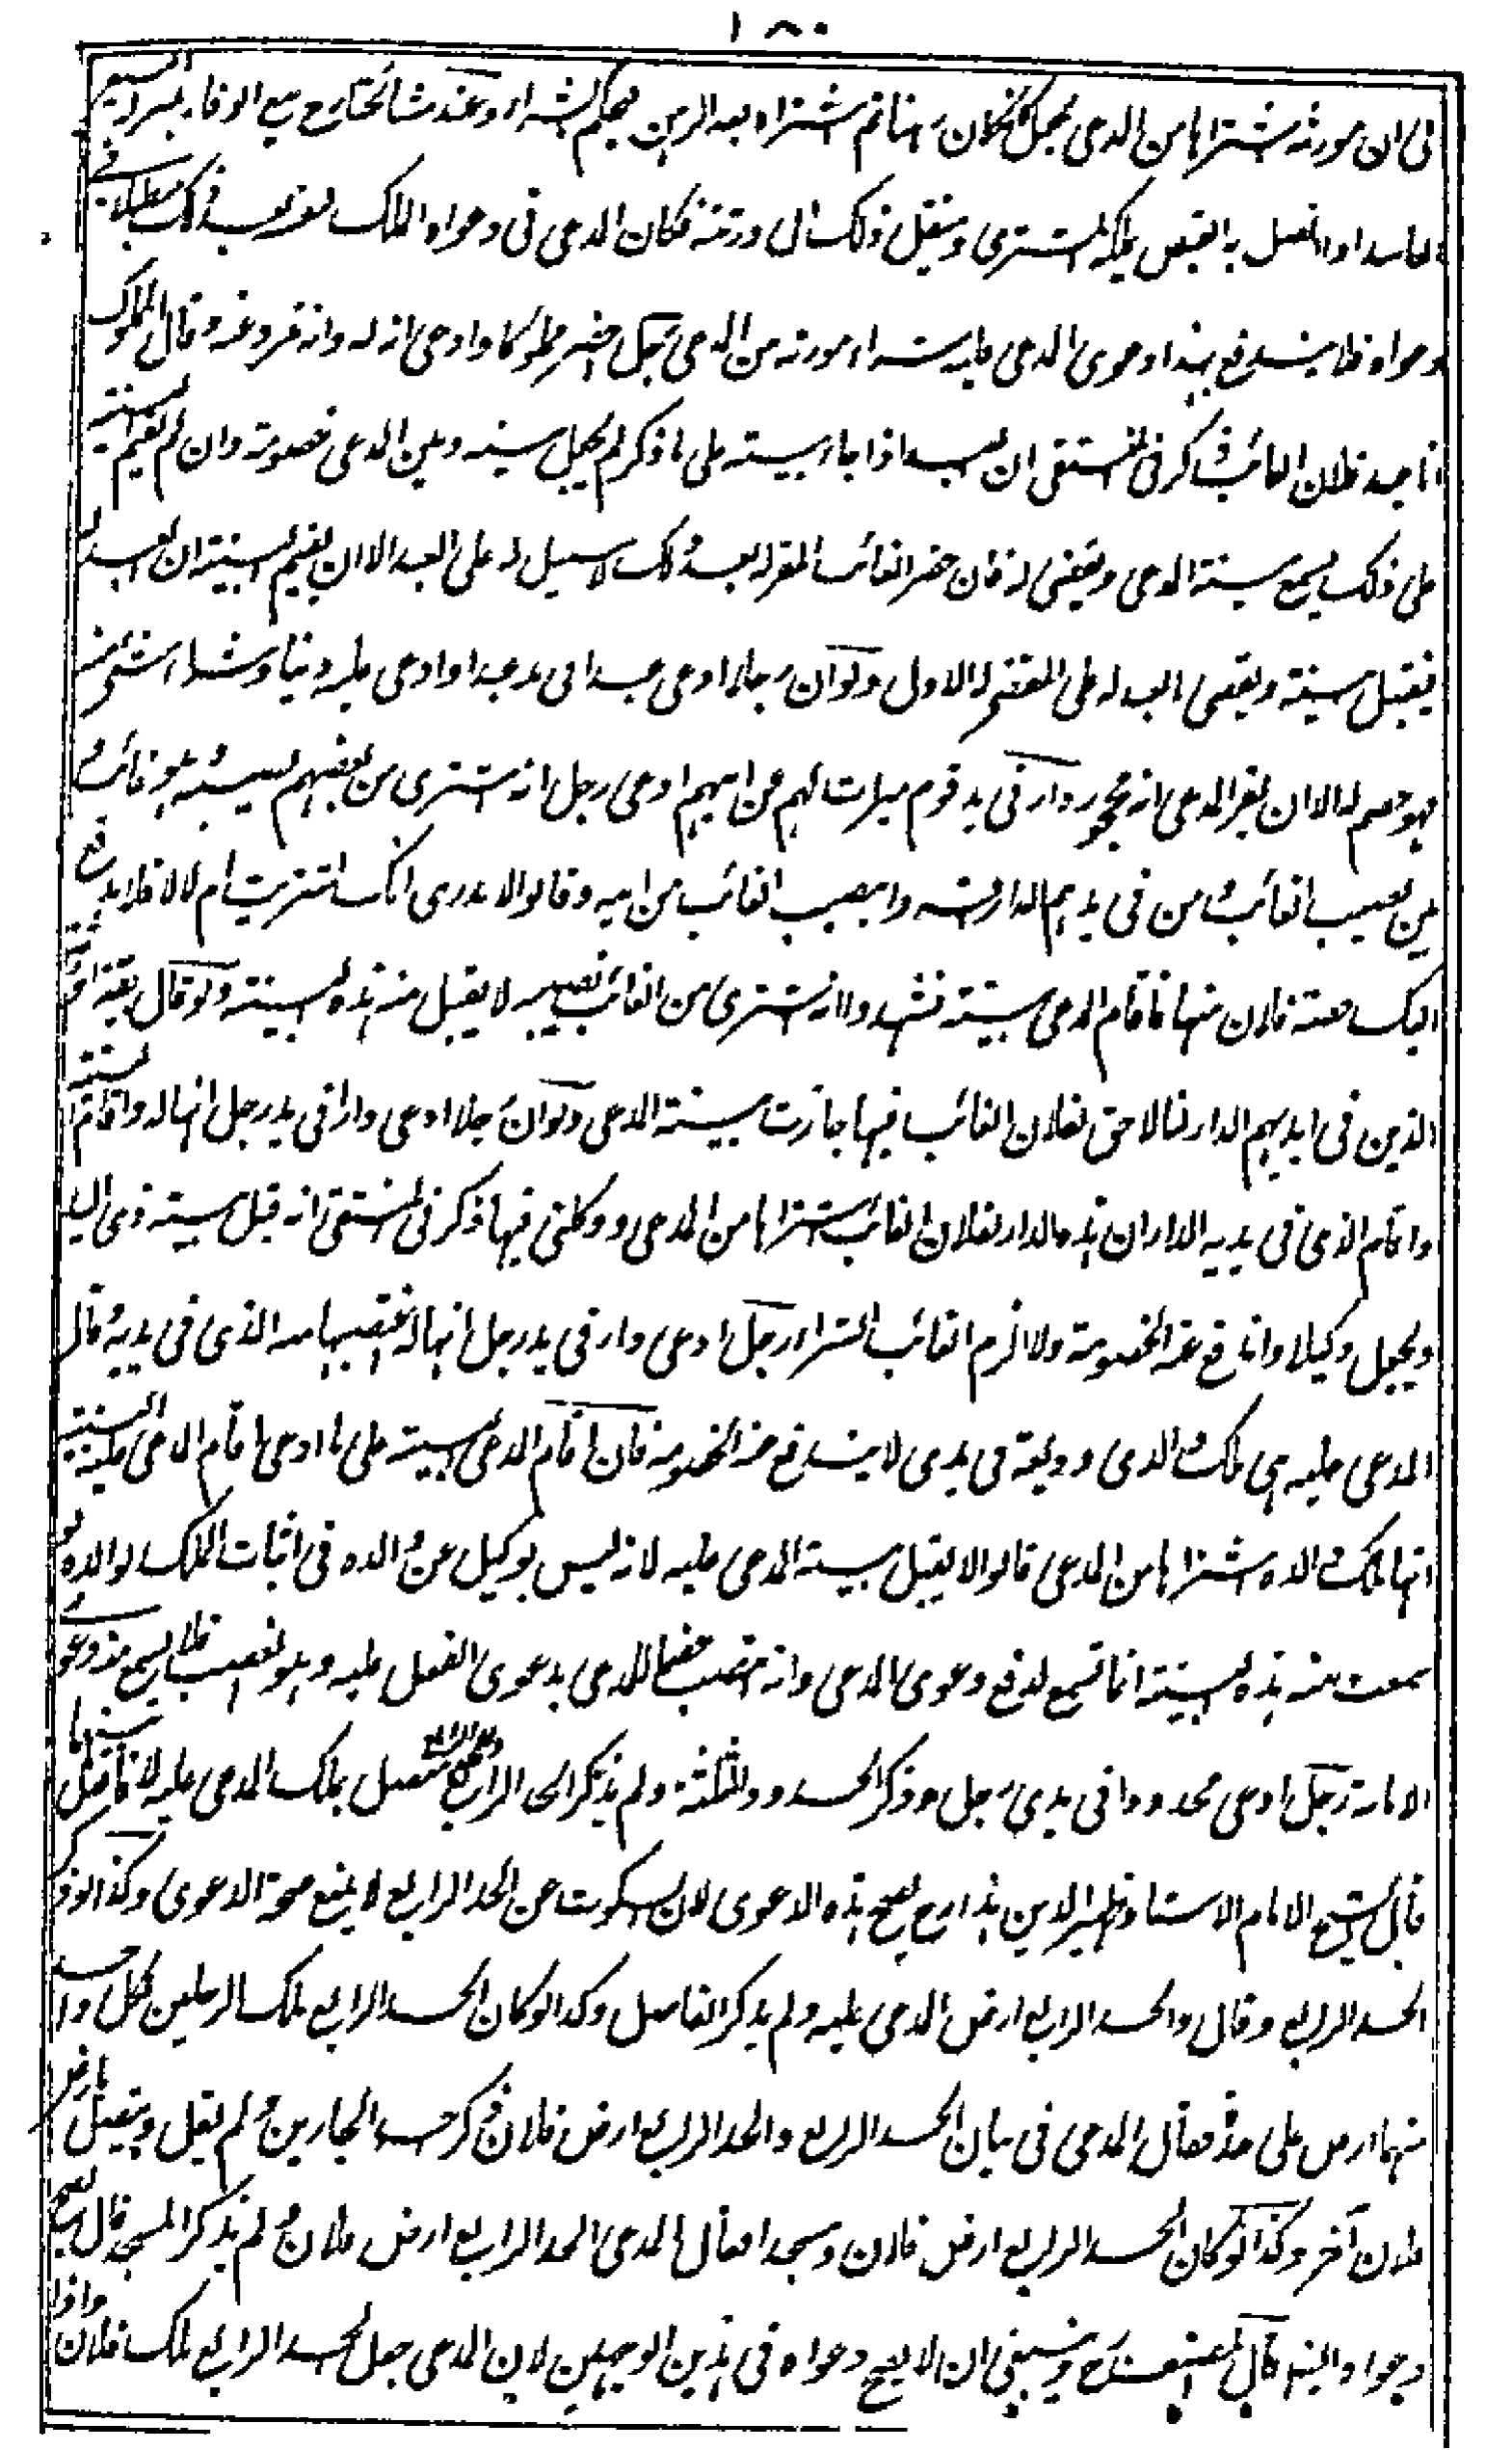 ١٨٠
فى ان مورثه اشتراها من المدعى يجعل كان رهنا ثم اشتراه بعد الرهن بحكم الشراء وعند مشائخنا رح بيع الوفاء بمنزلة البيع
الفاسد اذا اتصل به القبض يملكه المشترى وينتقل ذلك الى ورثته فكان المدعى فى دعواه الملك لنفسه بعد ذلك مبطلا فى
دعواه فلا يندفع بهذا دعوى المدعى عليه شراء مورثه من المدعى رجل احضر مملوكا وادعى انه له وانه تمرد عنه وقال المملوك
انا عبد فلان الغائب ذكر فى المنتقى ان العبد اذا جاء ببينة على ما ذكر لم يجعل بينه وبين المدعى خصومة وان لم يقم البينة
على ذلك يسمع بينة المدعى ويقضى له فان حضر الغائب المقر له بعد ذلك لا سبيل له على العبد الا ان يقيم البينة ان العبد له
فيقبل بينته ويقضى العبد له على المقضى له الاول ولو ان رجلا ادعى عبدا فى يد عبد او ادعى عليه دينا او شراء شئ منه
فهو خصم له الا ان يقر المدعى انه محجور دار فى يد قوم ميراث لهم عن ابيهم ادعى رجل انه اشترى من بعضهم نصيبه وهو غائب و
بين نصيب الغائب ومن فى يديهم الدار اقروا بنصيب الغائب من ابيه وقالوا لا ندرى انك اشتريت ام لا فلا يدفع
اليك حصة فلان منها فاقام المدعى بينة فشهدوا انه اشترى من الغائب نصيبه لا يقبل منه هذه البينة ولو قال بقية الورثة
الذين فى ايديهم الدار لنا لا حق لفلان الغائب فيها جازت بينة المدعى ولو ان رجلا ادعى دارا فى يد رجل انها له واقام البينة
واقام الذى فى يديه الدار ان هذه الدار لفلان الغائب اشتراها من المدعى ووكلنى فيها ذكر فى المنتقى انه قبل بينة ذى اليد
ويجعل وكيلا واندفع عنه الخصومة ولا الزم الغائب الشراء رجل ادعى دارا فى يد رجل انها له غصبها منه الذى فى يديه وقال
المدعى عليه هى ملك والدى وديعة فى يدى لا يندفع عنه الخصومة فان اقام المدعى بينة على ما ادعى واقام المدعى عليه البينة
انها ملك والده اشتراها من المدعى قالوا لا يقبل بينة المدعى عليه لانه ليس بوكيل عن والده فى اثبات الملك لوالده ولو
سمعت منه هذه البينة انما تسمع لدفع دعوى المدعى وانه انتصب خصما للمدعى بدعوى الفعل عليه وهو الغصب فلا يسمع منه دعوى
الامانة رجل ادعى محدودا فى يدى رجل وذكر الحدود الثلثة ولم يذكر الحد الرابع متصل بملك المدعى عليه لا فاصل بينهما
قال الشيخ الامام الاستاذ ظهير الدين هذا رح يصح هذه الدعوى لان السكوت عن الحد الرابع لا يمنع صحة الدعوى وكذا لو ذكر
الحد الرابع وقال والحد الرابع ارض المدعى عليه ولم يذكر الفاصل وكذا لو كان الحد الرابع ملك الرجلين لكل واحد
منهما ارض على حدة فقال المدعى فى بيان الحد الرابع والحد الرابع ارض فلان فذكر احد الجارين ولم يقل ويتصل بارض
فلان آخر وكذا لو كان الحد الرابع ارض فلان ومسجدا فقال المدعى الحد الرابع ارض فلان ولم يذكر المسجد قال يصح
دعواه ايضا قال المصنف رح وينبغى ان لا يصح دعواه فى هذين الوجهين لان المدعى جعل الحد الرابع ملك فلان واذا